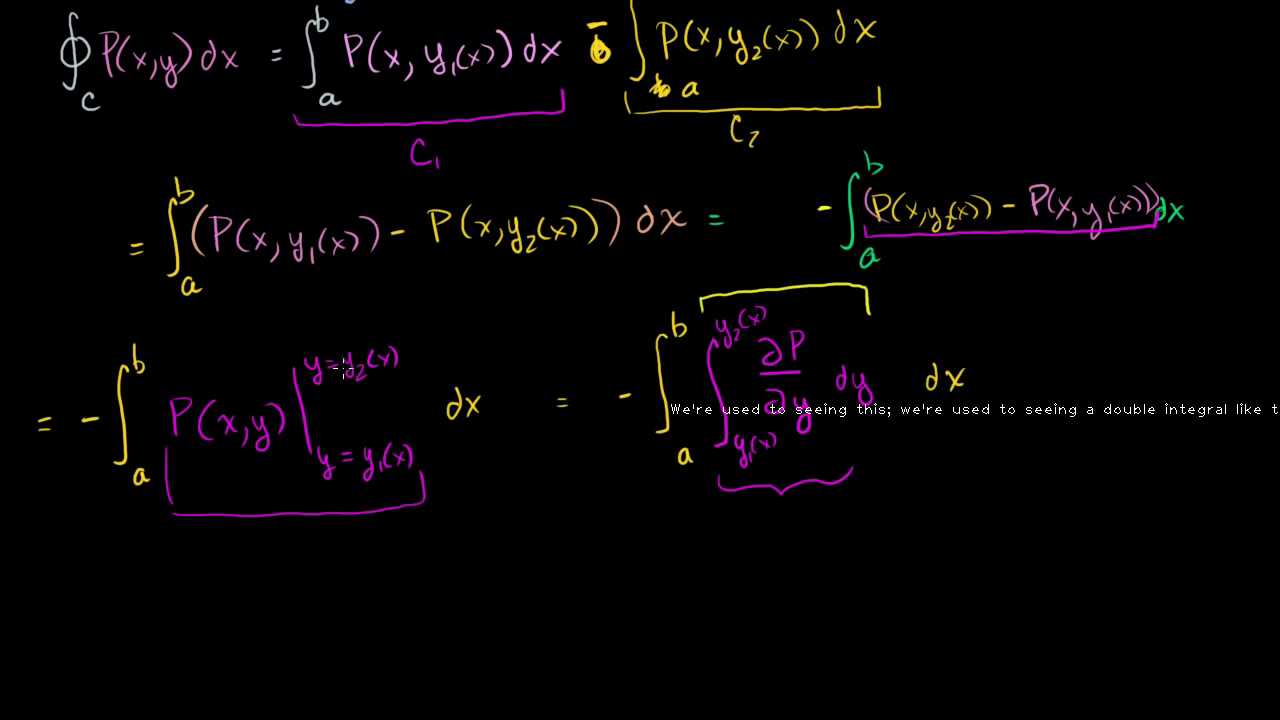 ∮_C P(x,y)dx = ∫_a^b P(x, y₁(x))dx - ∫_a P(x,y₂(x)) dx
C₁ C₂
= ∫_a^b (P(x,y₁(x)) - P(x,y₂(x))) dx = - ∫_a^b (P(x,y₂(x)) - P(x,y₁(x)))dx
= - ∫_a^b P(x,y) |_{y = y₁(x)}^{y=y₂(x)} dx = - ∫_a^b ∫_{y₁(x)}^{y₂(x)} ∂P/∂y dy dx
We're used to seeing this; we're used to seeing a double integral like t